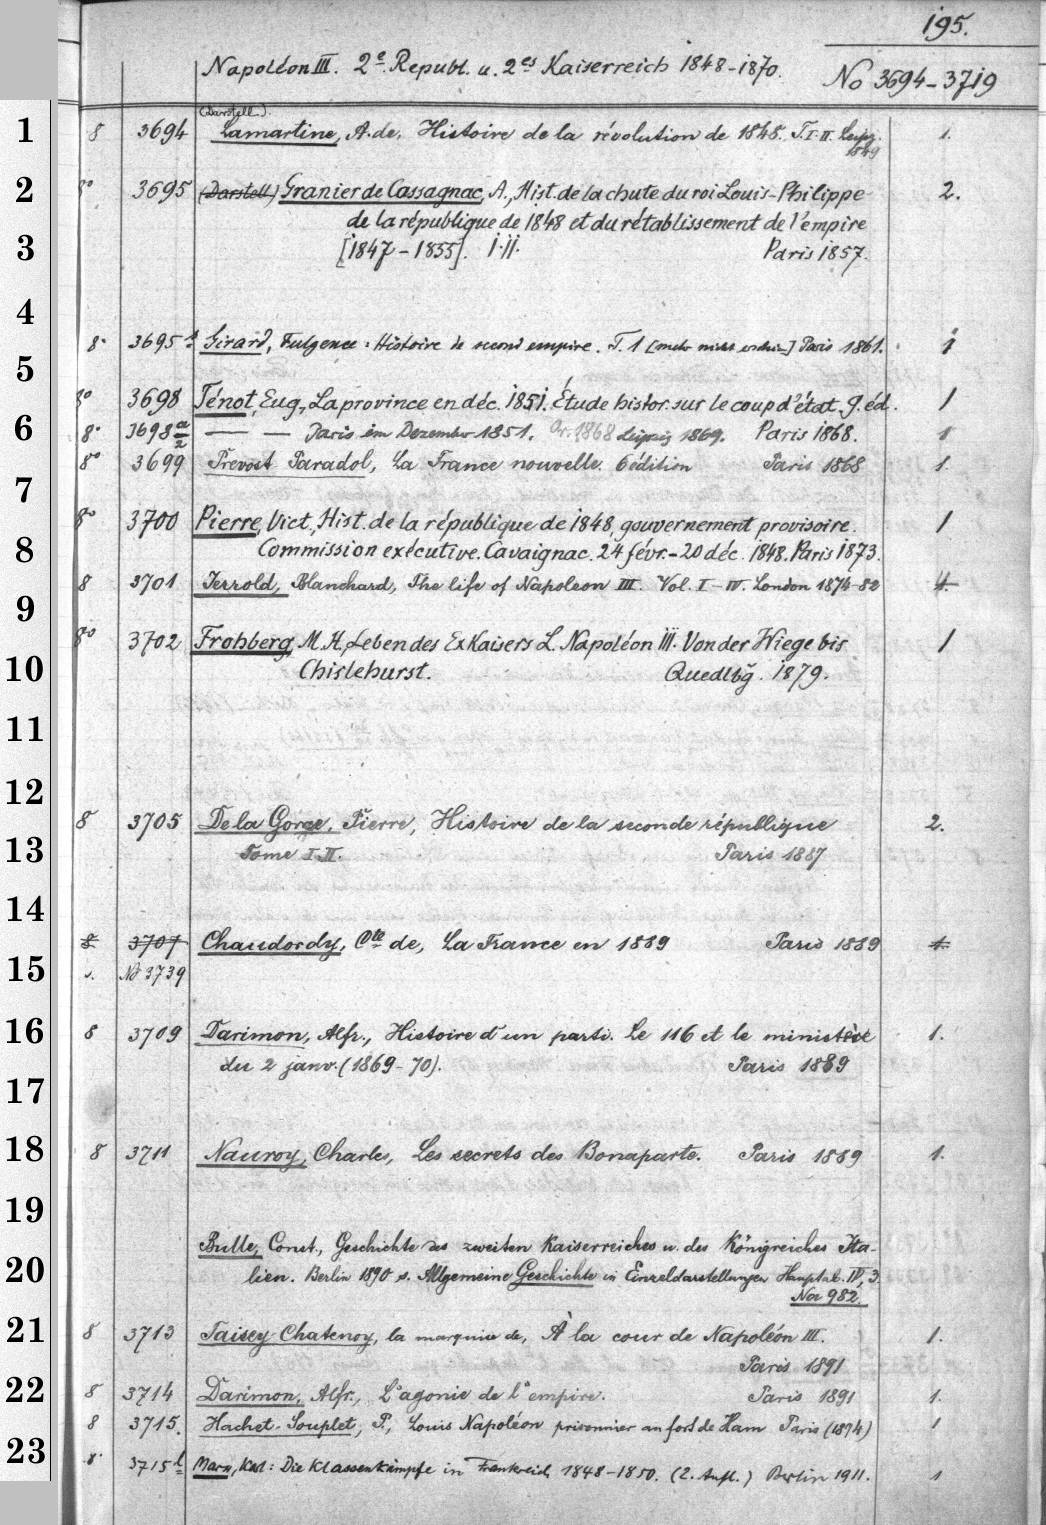 195.
Napoléon III. 2e Republ. u. 2es Kaiserreich 1848-1870. No 3694-3719
(Darstell).
1 8 3694 Lamartine, A. de, Histoire de la révolution de 1848. T. I-II. Leipz. 1.
1849
2 8o 3695 (Darstell) Granier de Cassagnac, A., Hist. de la chute du roi Louis-Philippe 2.
de la république de 1848 et du rétablissement de l'empire
3 [1847-1855]. I-II. Paris 1857.
4
8o 3695 Girard, Fulgence: Histoire de second empire. T. 1 [mehr nicht ersch.] Paris 1861. 1
5
8o 3698 Ténot, Eug., La province en déc. 1851. Étude histor. sur le coup d'état. 9. éd. 1
6 8o 3698 a/2 — — Paris im Dezember 1851. 1868 Leipzig 1869. Paris 1868. 1
8o 3699 Prevost Paradol, La France nouvelle. 6 édition Paris 1868 1.
7
8o 3700 Pierre, Vict., Hist. de la république de 1848, gouvernement provisoire. 1
8 Commission exécutive. Cavaignac. 24 févr.-20 déc. 1848. Paris 1873.
8 3701 Jerrold, Blanchard, The life of Napoleon III. Vol. I-IV. London 1874-82 4.
9
8o 3702 Frohberg, M. H., Leben des Ex Kaisers L. Napoléon III. Von der Wiege bis 1
10 Chislehurst. Quedlbg. 1879.
11
12
8 3705 De la Gorge, Pierre, Histoire de la seconde république 2.
13 Tome I-II. Paris 1887
14
8 3707 Chaudordy, Cte de, La France en 1889 Paris 1889 1.
15 No 3739
16 8 3709 Darimon, Alfr., Histoire d'un parti. Le 116 et le ministère 1.
du 2 janv. (1869-70). Paris 1889
17
18 8 3711 Nauroy, Charles, Les secrets des Bonaparte. Paris 1889 1.
19
Bulle, Const., Geschichte des zweiten Kaiserreiches u. des Königreiches Ita-
20 lien. Berlin 1890 s. Allgemeine Geschichte in Einzeldarstellungen Hauptab. IV, 3.
No 982
21 8 3713 Taisey-Chatenoy, la marquise de, À la cour de Napoléon III. 1.
Paris 1891
22 8 3714 Darimon, Alfr., L'agonie de l'empire. Paris 1891 1.
8 3715. Hachet-Souplet, P., Louis Napoléon prisonnier au fort de Ham Paris (1894) 1
23 8o 3715 Marx, Karl: Die Klassenkämpfe in Frankreich 1848-1850. (2. Aufl.) Berlin 1911. 1